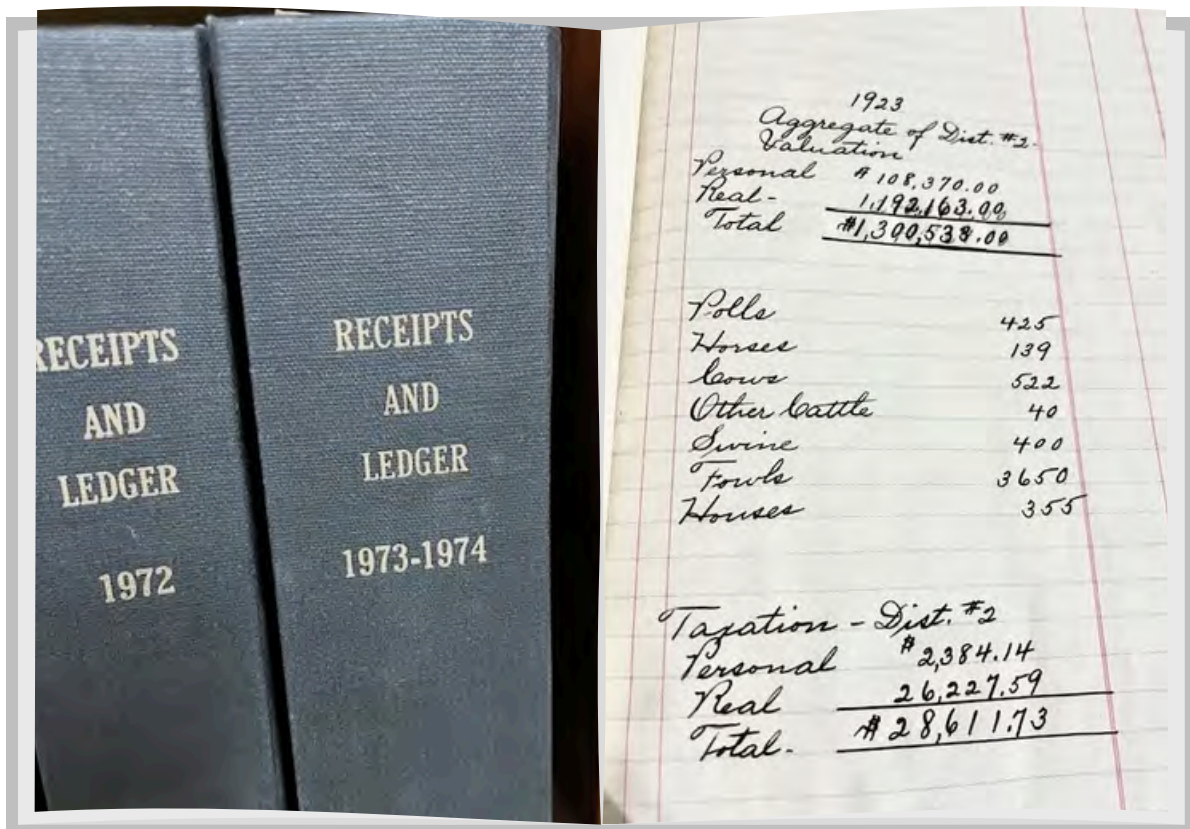 RECEIPTS
AND
LEDGER
1972
RECEIPTS
AND
LEDGER
1973-1974
1923
Aggregate of Dist. #2.
Valuation
Personal $108,370.00
Real - 1,192,163.00
Total $1,300,538.00
Polls 425
Horses 139
Cows 522
Other Cattle 40
Swine 400
Fowls 3650
Houses 355
Taxation - Dist. #2
Personal $2,384.14
Real 26,227.59
Total. $28,611.73